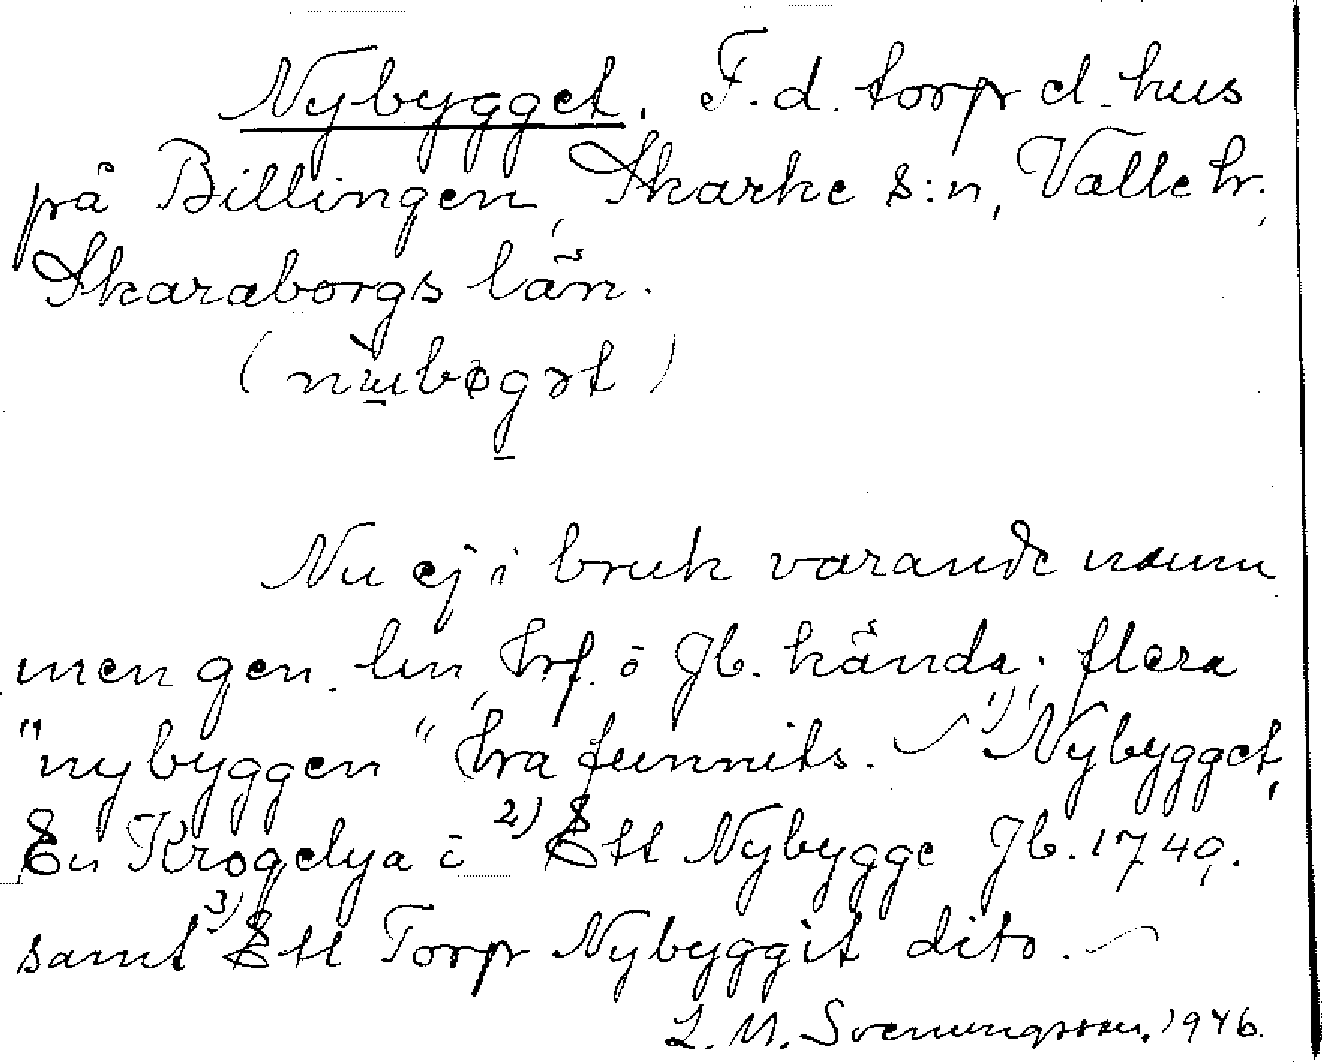 Nybygget. F.d. torp el. hus
på Billingen, Skarke s:n, Valle hr.,
Skaraborgs län.
Nu ej i bruk varande namn
men gen. lm, hrf. o Jb. kända; flera
"nybyggen" ha funnits. – 1) Nybygget,
En Krogelya o 2) Ett Nybygge Jb. 1749.
samt 3) Ett Torp Nybyggit dito. –
L. M. Svenungsson, 1946.